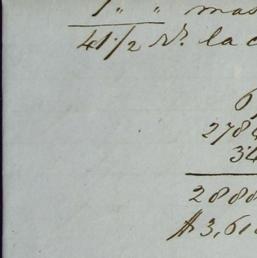 1 " " mas
41 1/2 Rs. la c
6
2784
34
2888
$ 3,610